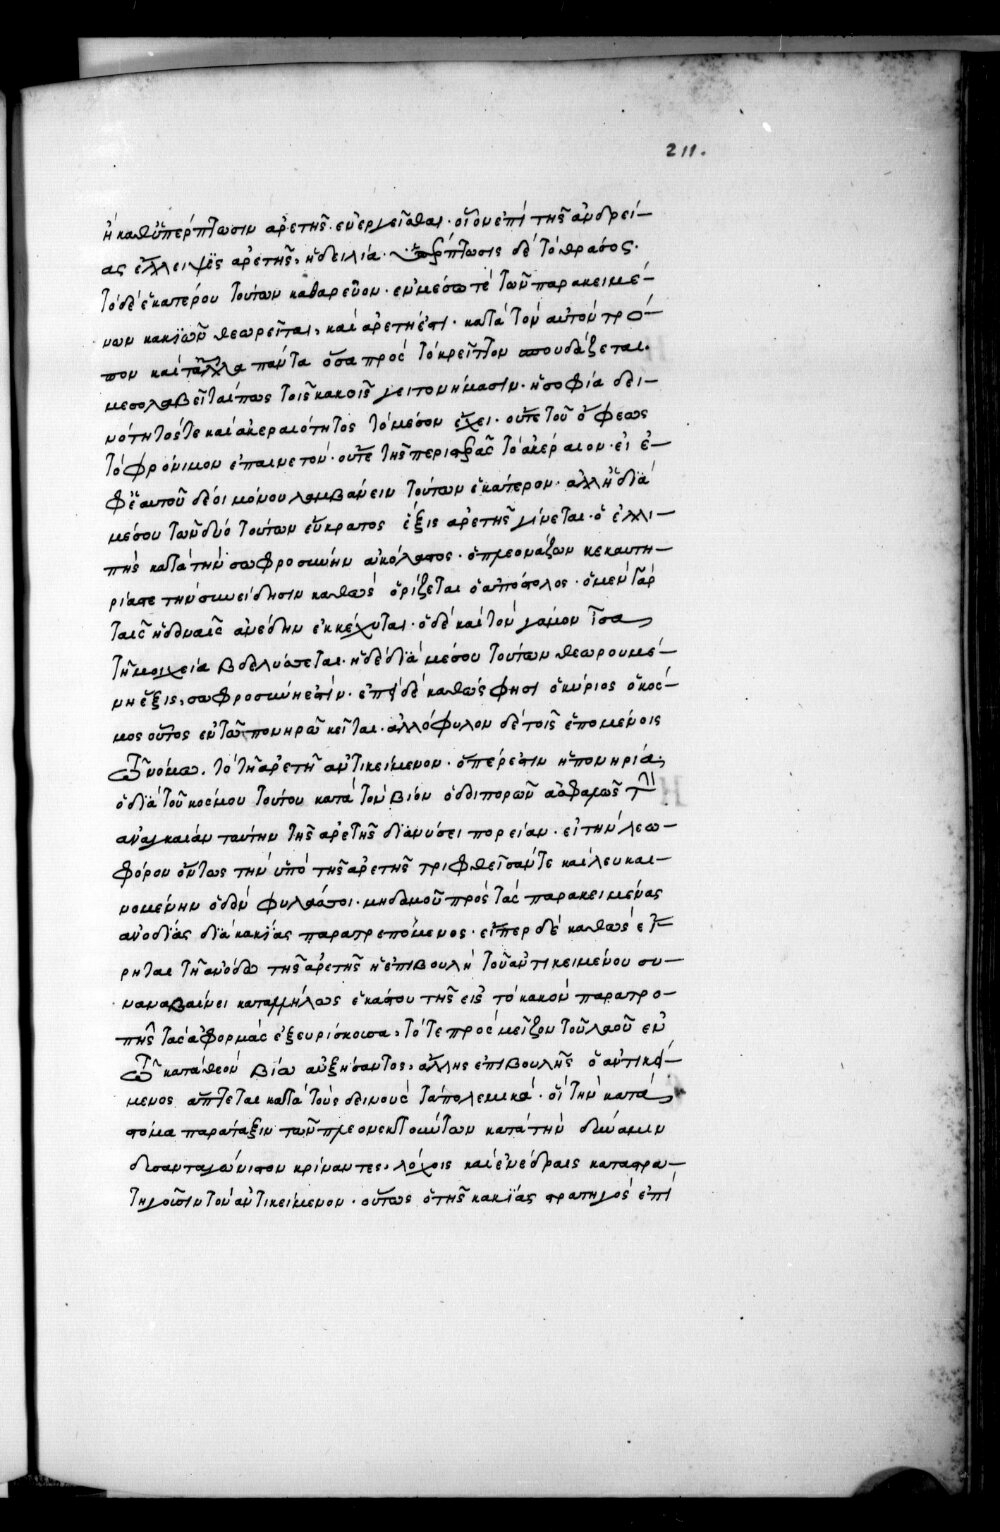 211.
ἢ καθ' ὑπέρπτωσιν ἀρετῆς ἐνεργεῖσθαι· οἷον ἐπὶ τῆς ἀνδρεί-
ας ἔλλειψίς ἀρετῆς, ἡ δειλία· ὑπέρπτωσις δὲ τὸ θράσος·
τὸ δὲ ἑκατέρου τούτων καθαρεῦον· ἐν μέσω τὲ τῶν παρακειμέ-
νων κακιῶν θεωρεῖται, καὶ ἀρετὴ ἐστι· κατὰ τὸν αὐτὸν τρό-
πον καὶ τἆλλα πάντα ὅσα πρὸς τὸ κρεῖττον σπουδάζεται·
μεσολαβεῖται πως τοῖς κακοῖς γειτονήμασιν· ἡ σοφία δει-
νότητός τε καὶ ἀκεραιότητος τὸ μέσον ἔχει· οὔτε τοῦ ὄφεως
τὸ φρόνιμον ἐπαινετόν· οὔτε τῆς περιστερᾶς τὸ ἀκέραιον· εἰ ἐ-
φ' ἑαυτοῦ δέοι μόνου λαμβάνειν τούτων ἑκάτερον· ἀλλ' ἡ διὰ
μέσου τῶν δύο τούτων εὔκρατος ἕξις ἀρετὴ γίνεται· ὁ ἐλλι-
πὴς κατὰ τὴν σωφροσύνην ἀκόλαστος· ὁ πλεονάζων κεκαυτη-
ρίασται τὴν συνείδησιν καθὼς ὁρίζεται ὁ ἀπόστολος· ὁ μὲν γὰρ
ταῖς ἡδοναῖς ἀνέδην ἐκκέχυται· ὁ δὲ καὶ τὸν γάμον ἴσα
τῇ μοιχεία βδελύσσεται· ἡ δὲ διὰ μέσου τούτων θεωρουμέ-
νη ἕξις, σωφροσύνη ἐστίν· ἐπεὶ δὲ καθώς φησι ὁ κύριος ὁ κόσ-
μος οὗτος ἐν τῶ πονηρῶ κεῖται· ἀλλόφυλον δὲ τοῖς ἑπομένοις
τῶ νόμω· τὸ τῇ ἀρετῇ ἀντικείμενον· ὅπερ ἐστὶν ἡ πονηρία,
ὁ διὰ τοῦ κόσμου τούτου κατὰ τὸν βίον ὁδοιπορῶν ἀσφαλῶς τὴν
ἀναγκαίαν ταύτην τῆς ἀρετῆς διανύσει πορείαν· εἰ τὴν λεω-
φόρον ὄντως τὴν ὑπὸ τῆς ἀρετῆς τριφθεῖσάν τε καὶ λευκαι-
νομένην ὁδὸν φυλάσσοι· μηδαμοῦ πρὸς τὰς παρακειμένας
ἀνοδίας διὰ κακίας παρατρεπόμενος· εἴπερ δὲ καθὼς εἴ-
ρηται τῇ ἀνόδω τῆς ἀρετῆς ἡ ἐπιβουλὴ τοῦ ἀντικειμένου συ-
ναναβαίνει καταλλήλως ἑκάστου τῆς εἰς τὸ κακὸν παρατρο-
πῆς τὰς ἀφορμὰς ἐξευρίσκουσα, τότε πρὸς μεῖζον τοῦ λαοῦ ἐν
τῶ κατὰ θεὸν βίω αὐξήσαντος, ἄλλης ἐπιβουλῆς ὁ ἀντικεί-
μενος ἅπτεται κατὰ τοὺς δεινοὺς τὰ πολεμικά· οἳ τὴν κατὰ
στόμα παράταξιν τῶν πλεονεκτούντων κατὰ τὴν δύναμιν
δυσανταγώνιστον κρίναντες, λόχοις καὶ ἐνέδραις καταστρα-
τηγοῦσιν τὸν ἀντικείμενον· οὕτως ὁ τῆς κακίας στρατηγὸς ἐπὶ